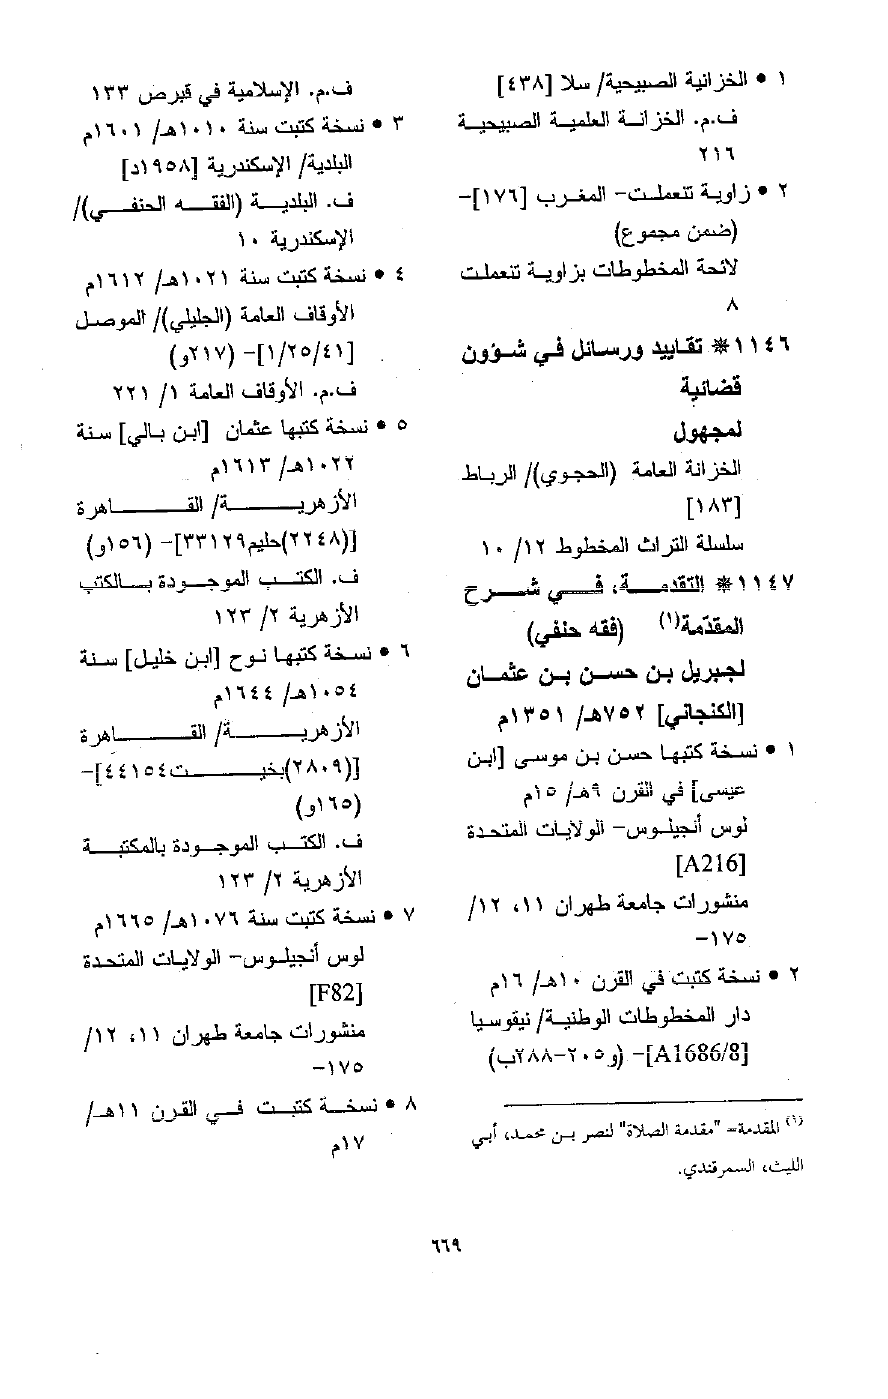 ١ • الخزانية الصبيحية/ سلا [٤٣٨]
ف.م. الخزانة العلمية الصبيحية
٢١٦
٢ • زاوية تنعملت- المغرب [١٧٦]-
(ضمن مجموع)
لائحة المخطوطات بزاوية تنعملت
٨
١١٤٦* تقاييد ورسائل في شؤون
قضائية
لمجهول
الخزانة العامة (الحجوي)/ الرباط
[١٨٣]
سلسلة التراث المخطوط ١٢/ ١٠
١١٤٧* التقدمة، في شرح
المقدّمة(١) (فقه حنفي)
لجبريل بن حسن بن عثمان
[الكنجاني] ٧٥٢هـ/ ١٣٥١م
١ • نسخة كتبها حسن بن موسى [ابن
عيسى] في القرن ٩هـ/ ١٥م
لوس أنجيلوس- الولايات المتحدة
[A216]
منشورات جامعة طهران ١١، ١٢/
١٧٥-
٢ • نسخة كتبت في القرن ١٠هـ/ ١٦م
دار المخطوطات الوطنية/ نيقوسيا
[A1686/8]- (و٢٠٥-٢٨٨ب)
(١) المقدمة= "مقدمة الصلاة" لنصر بن محمد، أبي
الليث، السمرقندي.
ف.م. الإسلامية في قبرص ١٣٣
٣ • نسخة كتبت سنة ١٠١٠هـ/ ١٦٠١م
البلدية/ الإسكندرية [١٩٥٨د]
ف. البلدية (الفقه الحنفي)/
الإسكندرية ١٠
٤ • نسخة كتبت سنة ١٠٢١هـ/ ١٦١٢م
الأوقاف العامة (الجليلي)/ الموصل
[١/٢٥/٤١]- (٢١٧و)
ف.م. الأوقاف العامة ١/ ٢٢١
٥ • نسخة كتبها عثمان [ابن بالي] سنة
١٠٢٢هـ/ ١٦١٣م
الأزهرية/ القاهرة
[(٢٢٤٨)حليم٣٣١٢٩]- (١٥٦و)
ف. الكتب الموجودة بالكتب
الأزهرية ٢/ ١٢٣
٦ • نسخة كتبها نوح [ابن خليل] سنة
١٠٥٤هـ/ ١٦٤٤م
الأزهرية/ القاهرة
[(٢٨٠٩)بخيت٤٤١٥٤]-
(١٦٥و)
ف. الكتب الموجودة بالمكتبة
الأزهرية ٢/ ١٢٣
٧ • نسخة كتبت سنة ١٠٧٦هـ/ ١٦٦٥م
لوس أنجيلوس- الولايات المتحدة
[F82]
منشورات جامعة طهران ١١، ١٢/
١٧٥-
٨ • نسخة كتبت في القرن ١١هـ/
١٧م
٦٦٩